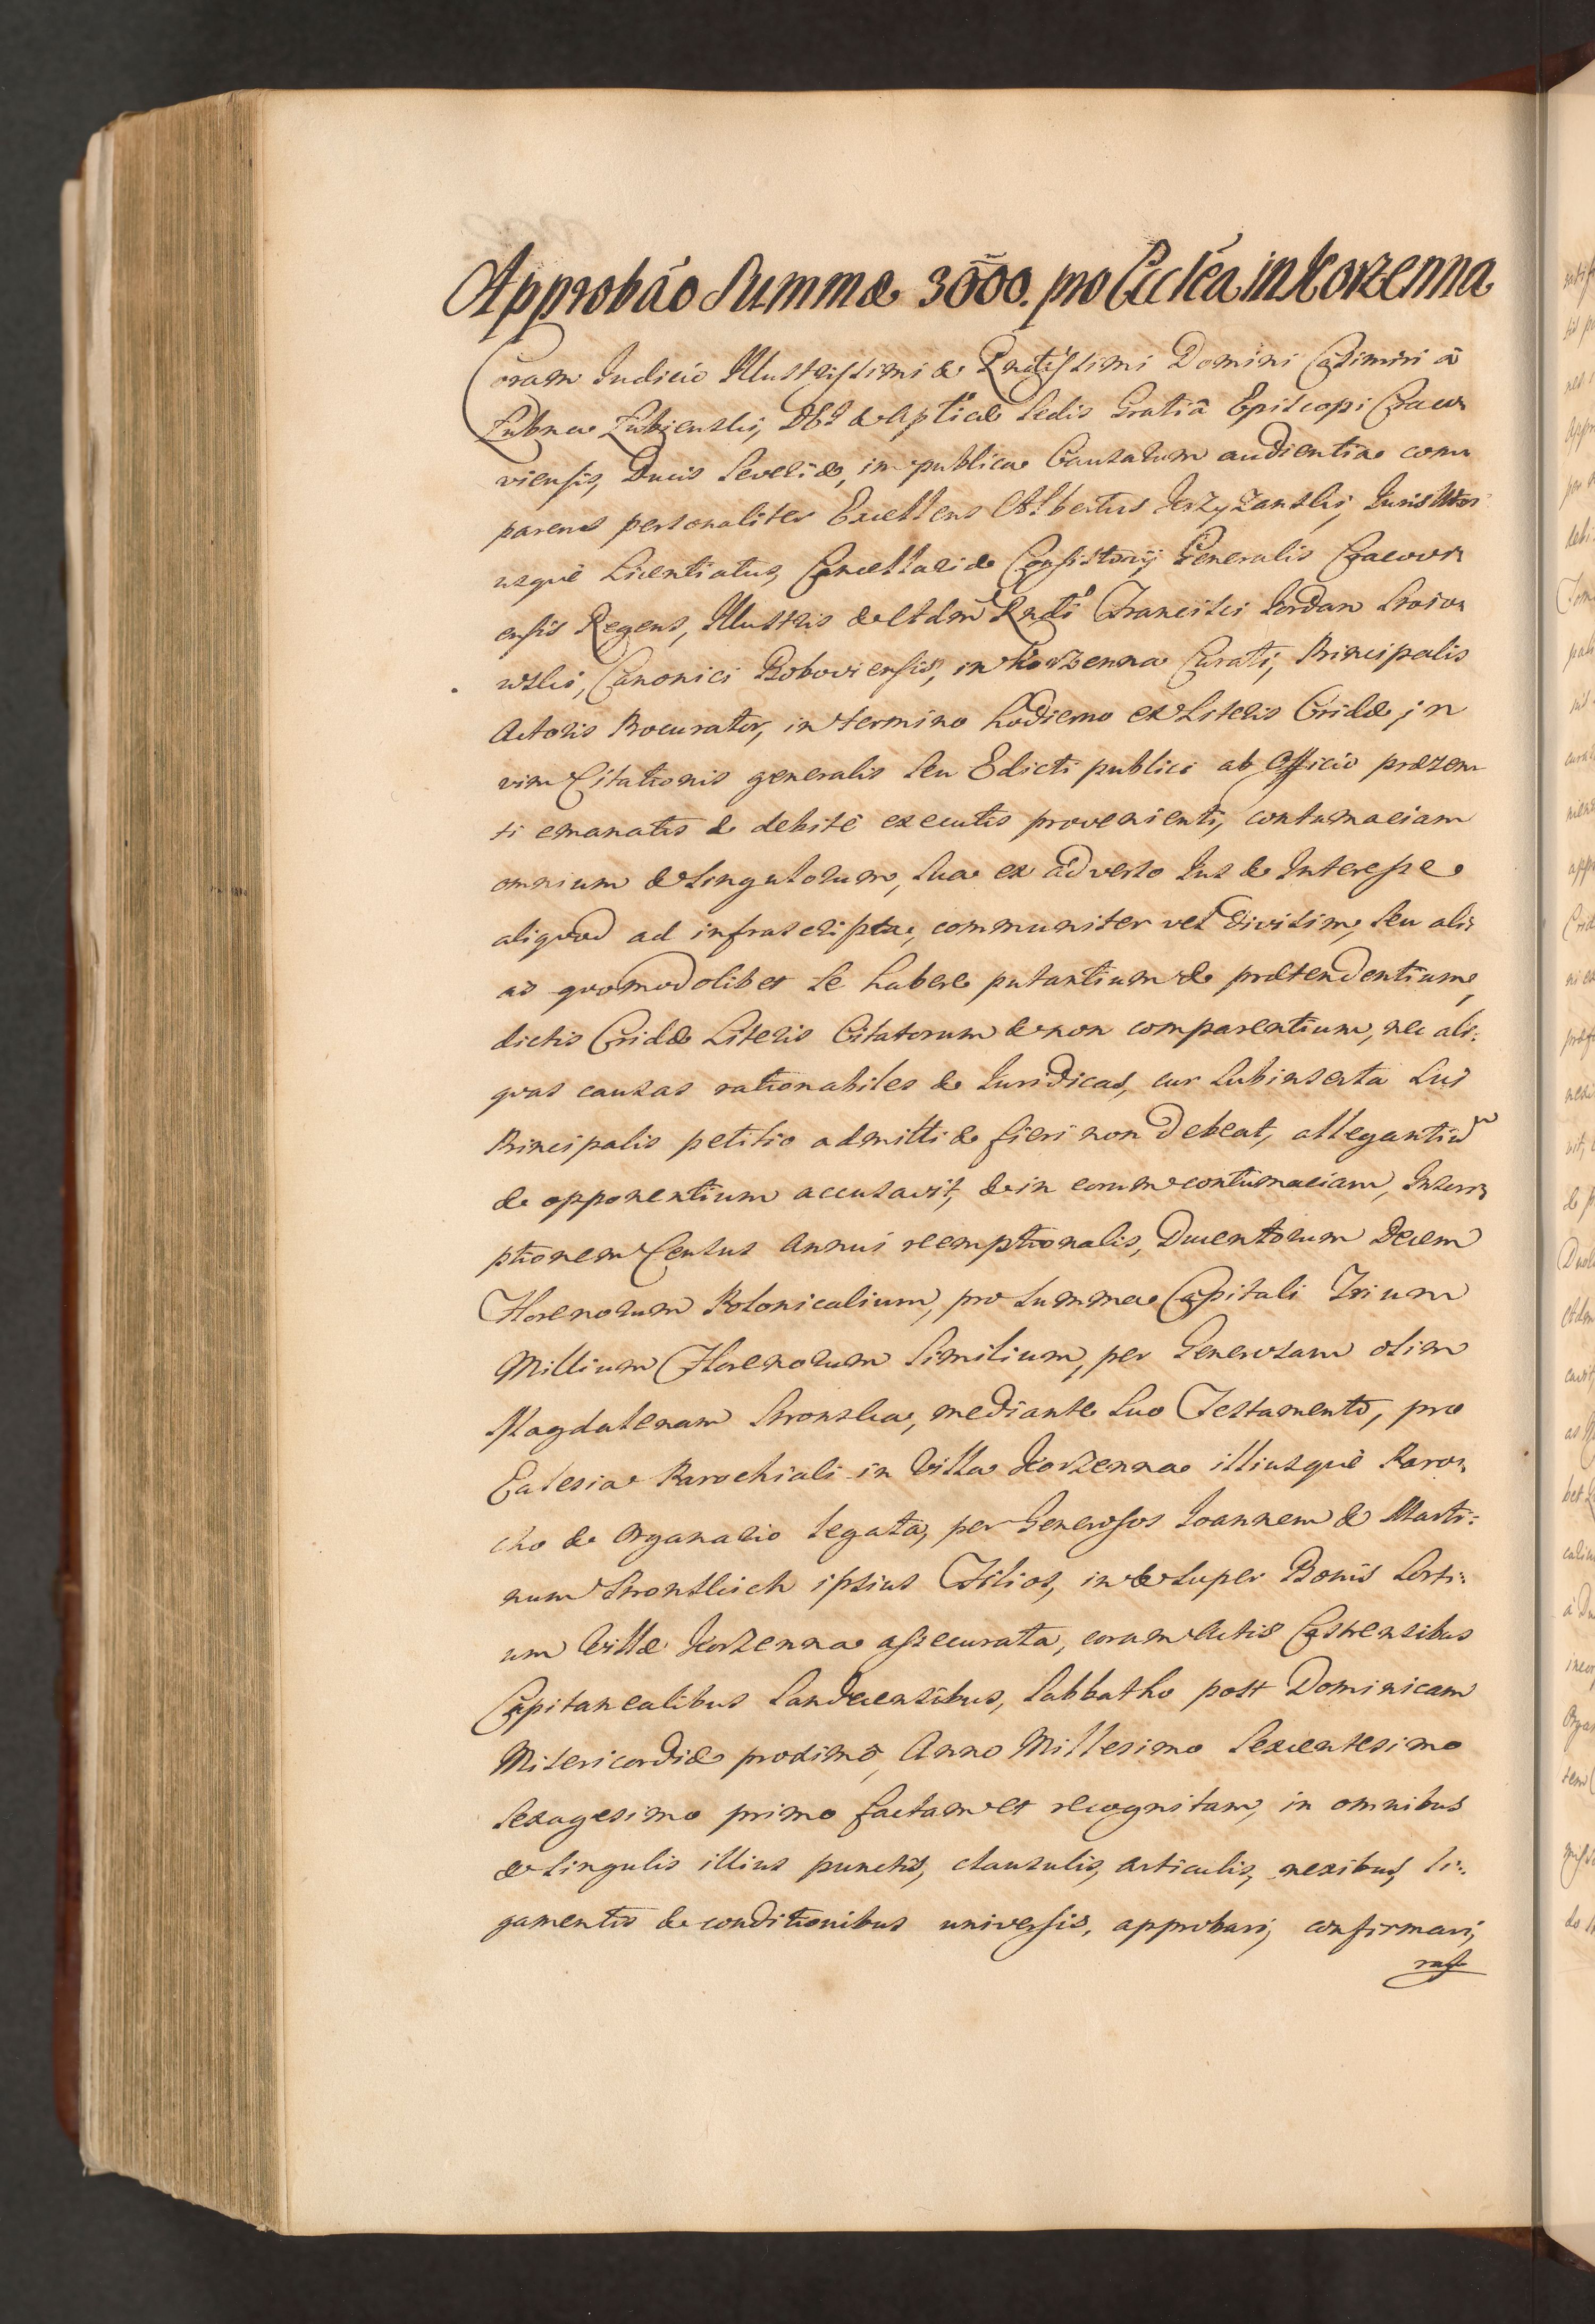 Approbão Summæ 3000. pro Ecclẽa in Korzenna
Coram Judicio Illustrissimi & Rndissimi Domini Casimiri à
Łubna Łubienski, DEI & Aplicæ Sedis Gratiâ Episcopi Craco-
viensis, Ducis Severiæ, in publica Causarum audientia com-
parens personaliter Excellens Albertus Jerzyzanski, Juris
usquè Licentiatus, Cancellariæ Consistorij Generalis Cracovi-
ensis Regens, Illustris & Adm Rndi Francisci Jordan Stoio-
wski, Canonici Boboviensis, in Korzenna Curati, Principalis
Actoris Procurator, in termino hodierno ex Literis Cridæ, in
vim Citationis generalis seu Edicti publici ab Officio præsen-
ti emanatis & debitè executis provenienti, contumaciam
omnium & singulorum, sua ex adverso Jus & Interesse
aliquod ad infrascripta, communiter vel divisim, seu ali-
as quomodolibet se habere putantium & prætendentium,
dictis Cridæ Literis Citatorum & non comparentium, nec ali-
quas causas rationabiles & Juridicas, cur subinserta sui
Principalis petitio admitti & fieri non debeat, allegantiũ
& opponentium accusavit, & in eorum contumaciam, Inscri-
ptionem Census annui reemptionalis, Ducentorum Decem
Florenorum Polonicalium, pro summa Capitali Trium
Millium Florenorum similium, per Generosam olim
Magdalenam Stronska, mediante suo Testamento, pro
Eclesia Parochiali in Villa Korzenna illiusquè Paro-
cho & Organario legata, per Generosos Joannem & Marti-
num Stronskich ipsius Filios, in & super Bonis Sorti-
um Villæ Korzenna assecurata, coram Actis Castrensibus
Capitanealibus Sandecensibus, Sabbatho post Dominicam
Misericordiæ proximo, Anno Millesimo Sexcentesimo
Sexagesimo primo factam et recognitam, in omnibus
& singulis illius punctis, clausulis, articulis, nexibus, li-
gamentis & conditionibus universis, approbari, confirmari,